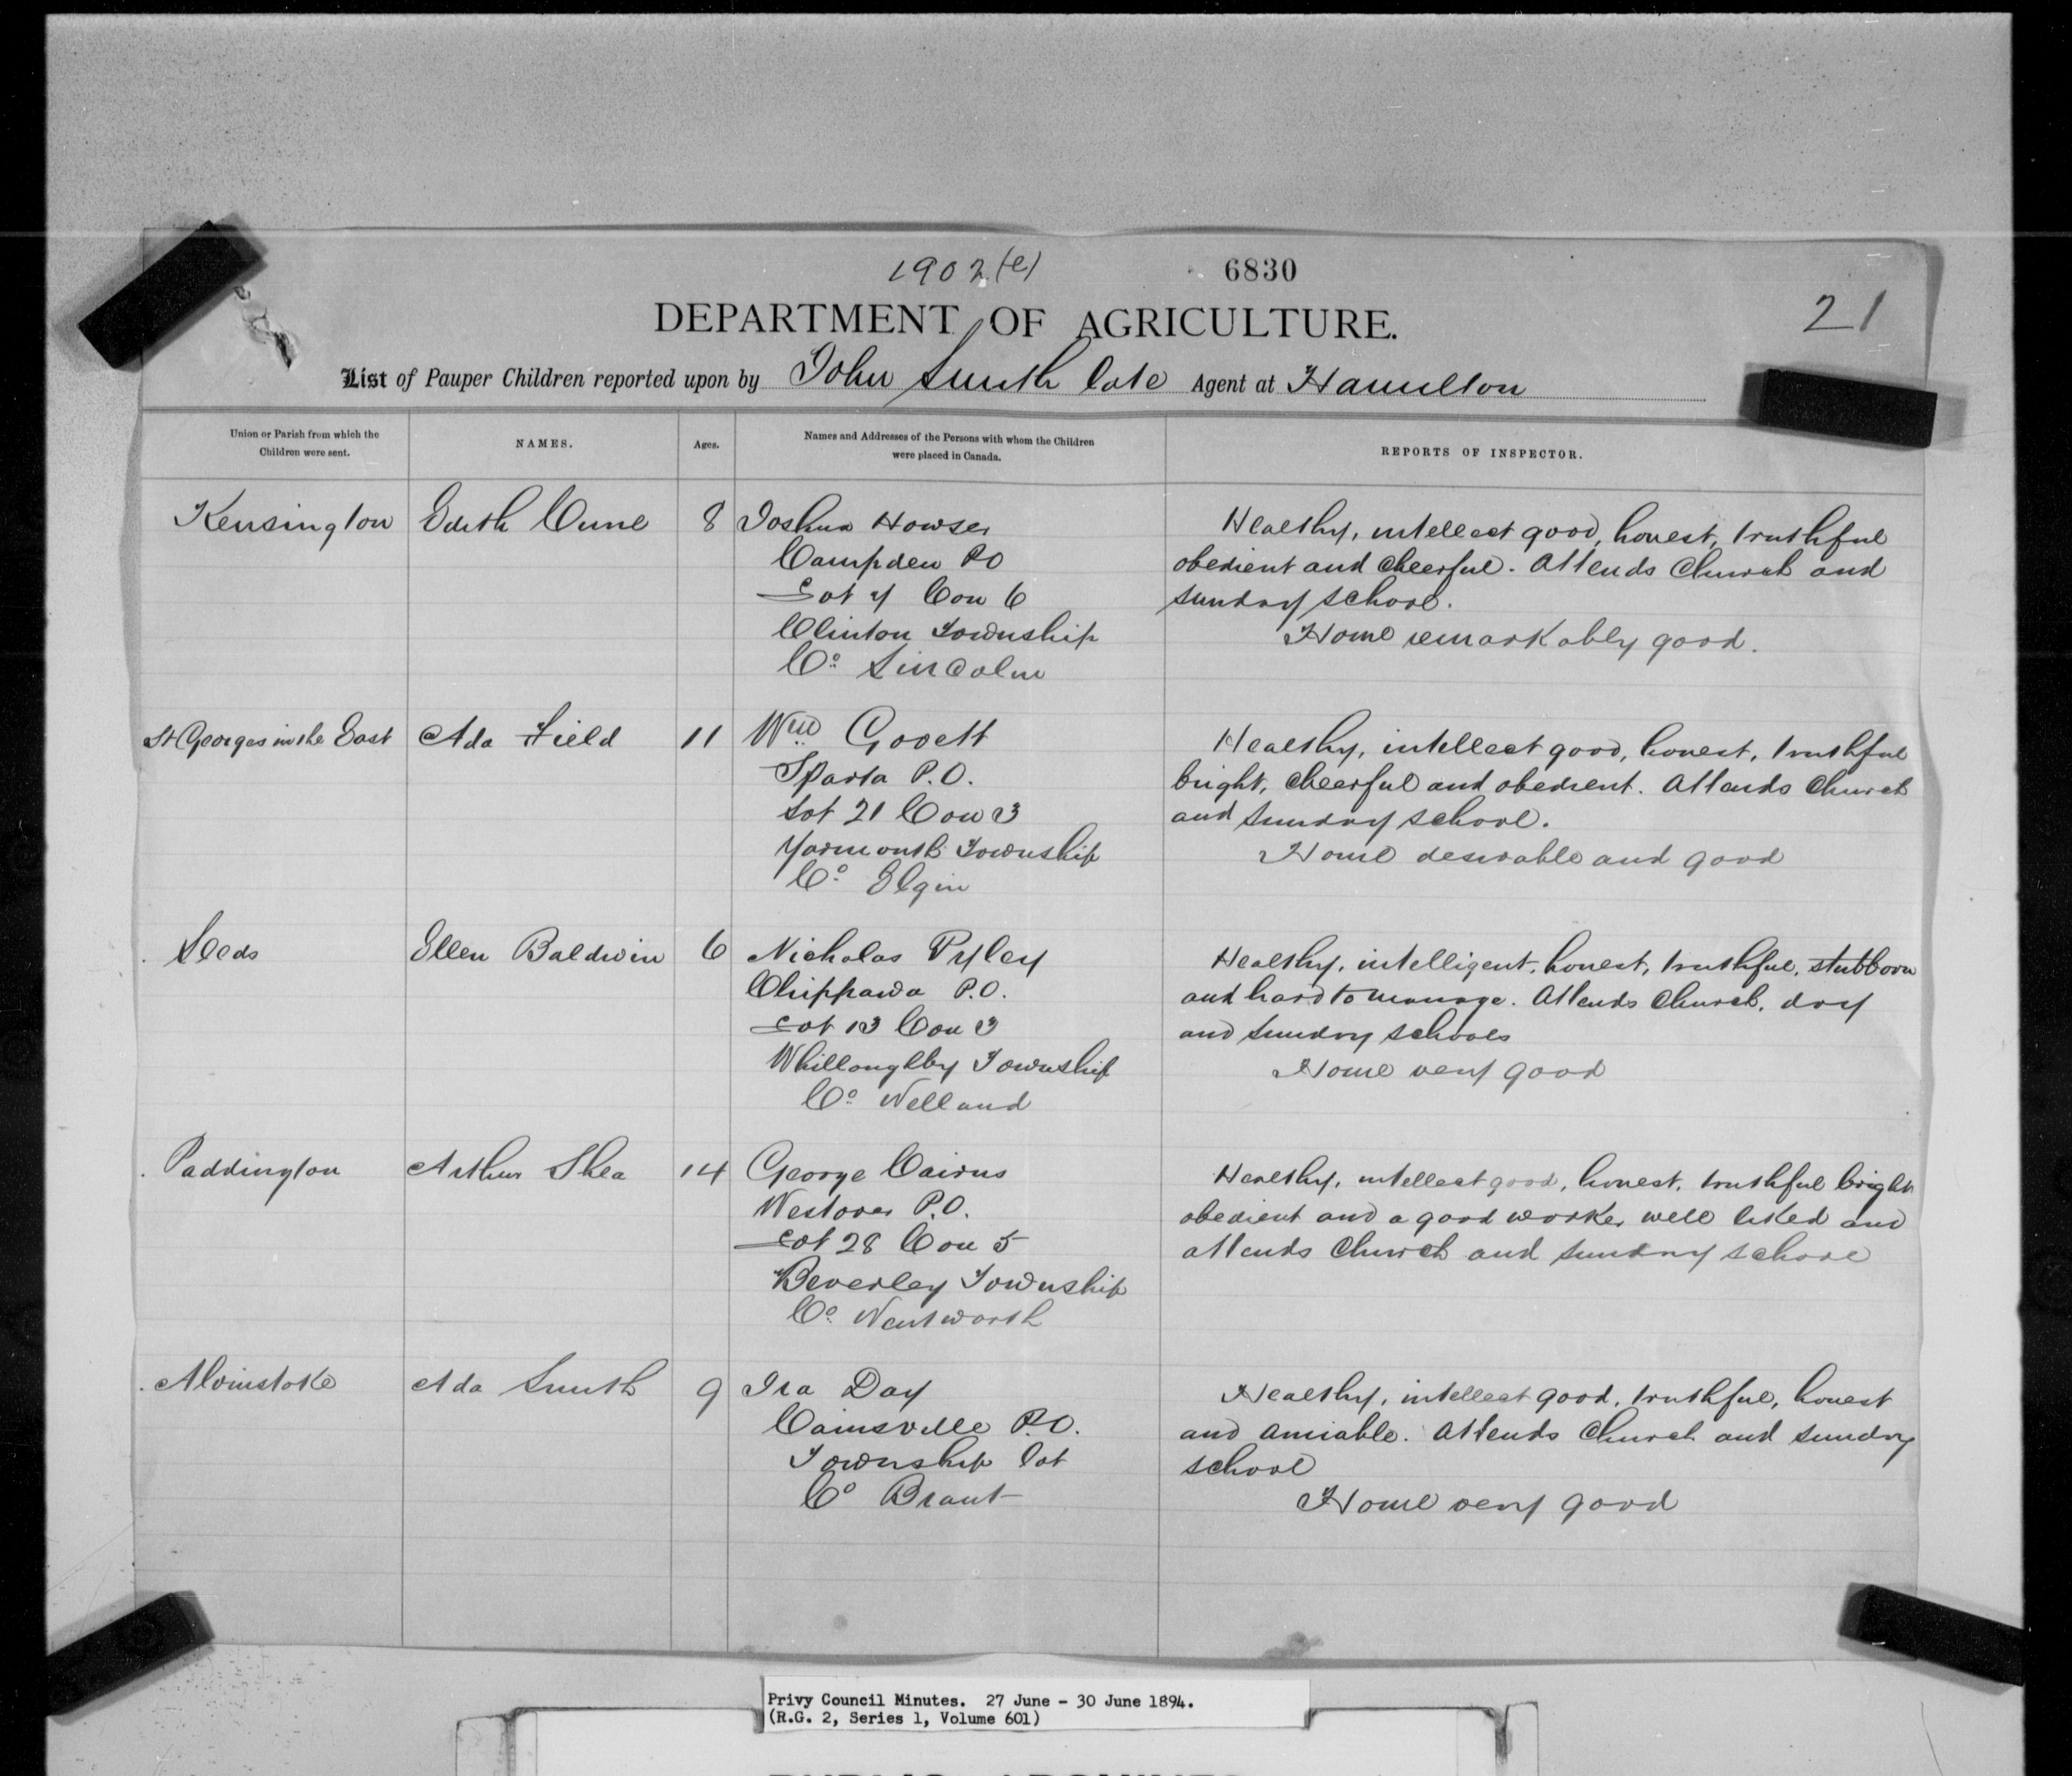 1902 (e) 6830
21
DEPARTMENT OF AGRICULTURE.
List of Pauper Children reported upon by John Smith late Agent at Hamilton
Union or Parish from which the Children were sent.
NAMES.
Ages.
Names and Addresses of the Persons with whom the Children were placed in Canada.
REPORTS OF INSPECTOR.
Kensington Edith Cune 8 Joshua Howser
Campden PO
Lot 4 Con 6
Clinton Township
Co. Lincoln
Healthy, intellect good, honest, truthful
obedient and cheerful. Attends Church and
Sunday School.
Home remarkably good.
St Georges in the East Ada Field 11 Wm Govett
Sparta P.O.
Lot 21 Con 3
Yarmouth Township
Co. Elgin
Healthy, intellect good, honest, truthful
bright, cheerful and obedient. Attends Church
and Sunday School.
Home desirable and good
Leeds Ellen Baldwin 6 Nicholas Pyley
Chippawa P.O.
Lot 13 Con 3
Whilloughby Township
Co. Welland
Healthy, intelligent, honest, truthful, stubborn
and hard to manage. Attends Church, day
and Sunday Schools
Home very good
Paddington Arthur Shea 14 George Cairns
Westover P.O.
Lot 28 Con 5
Beverley Township
Co. Wentworth
Healthy, intellect good, honest, truthful bright
obedient and a good worker well liked and
attends Church and Sunday School
Alvinstoke Ada Smith 9 Ira Day
Cainsville P.O.
Township lot
Co Brant
Healthy, intellect good, truthful, honest
and amiable. Attends Church and Sunday
School
Home very good
Privy Council Minutes. 27 June - 30 June 1894.
(R.G. 2, Series 1, Volume 601)